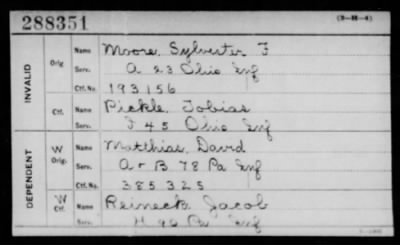 288351
(3-M-4)
INVALID
Orig. Name Moore, Sylvester F
Serv. A 23 Ohio Inf
Ctf. No. 193156
Ctf. Name Pickle, Tobias
Serv. F 45 Ohio Inf
DEPENDENT
W Orig. Name Matthias, David
Serv. A + B 78 Pa Inf
Ctf. No. 385325
W Ctf. Name Reineck Jacob
Serv. H 96 Pa Inf